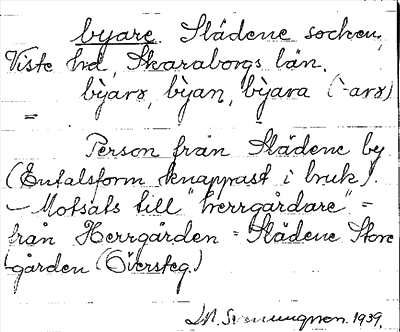 byare. Slädene socken,
Viste hd, Skaraborgs län.
bỳarɤ, bỳan, bỳara (-arɤ)
=
Person från Slädene by
(Entalsform knappast i bruk).
— Motsats till "herrgårdare" =
från Herrgården = Slädene Store
gården (Översteg.)
1939.